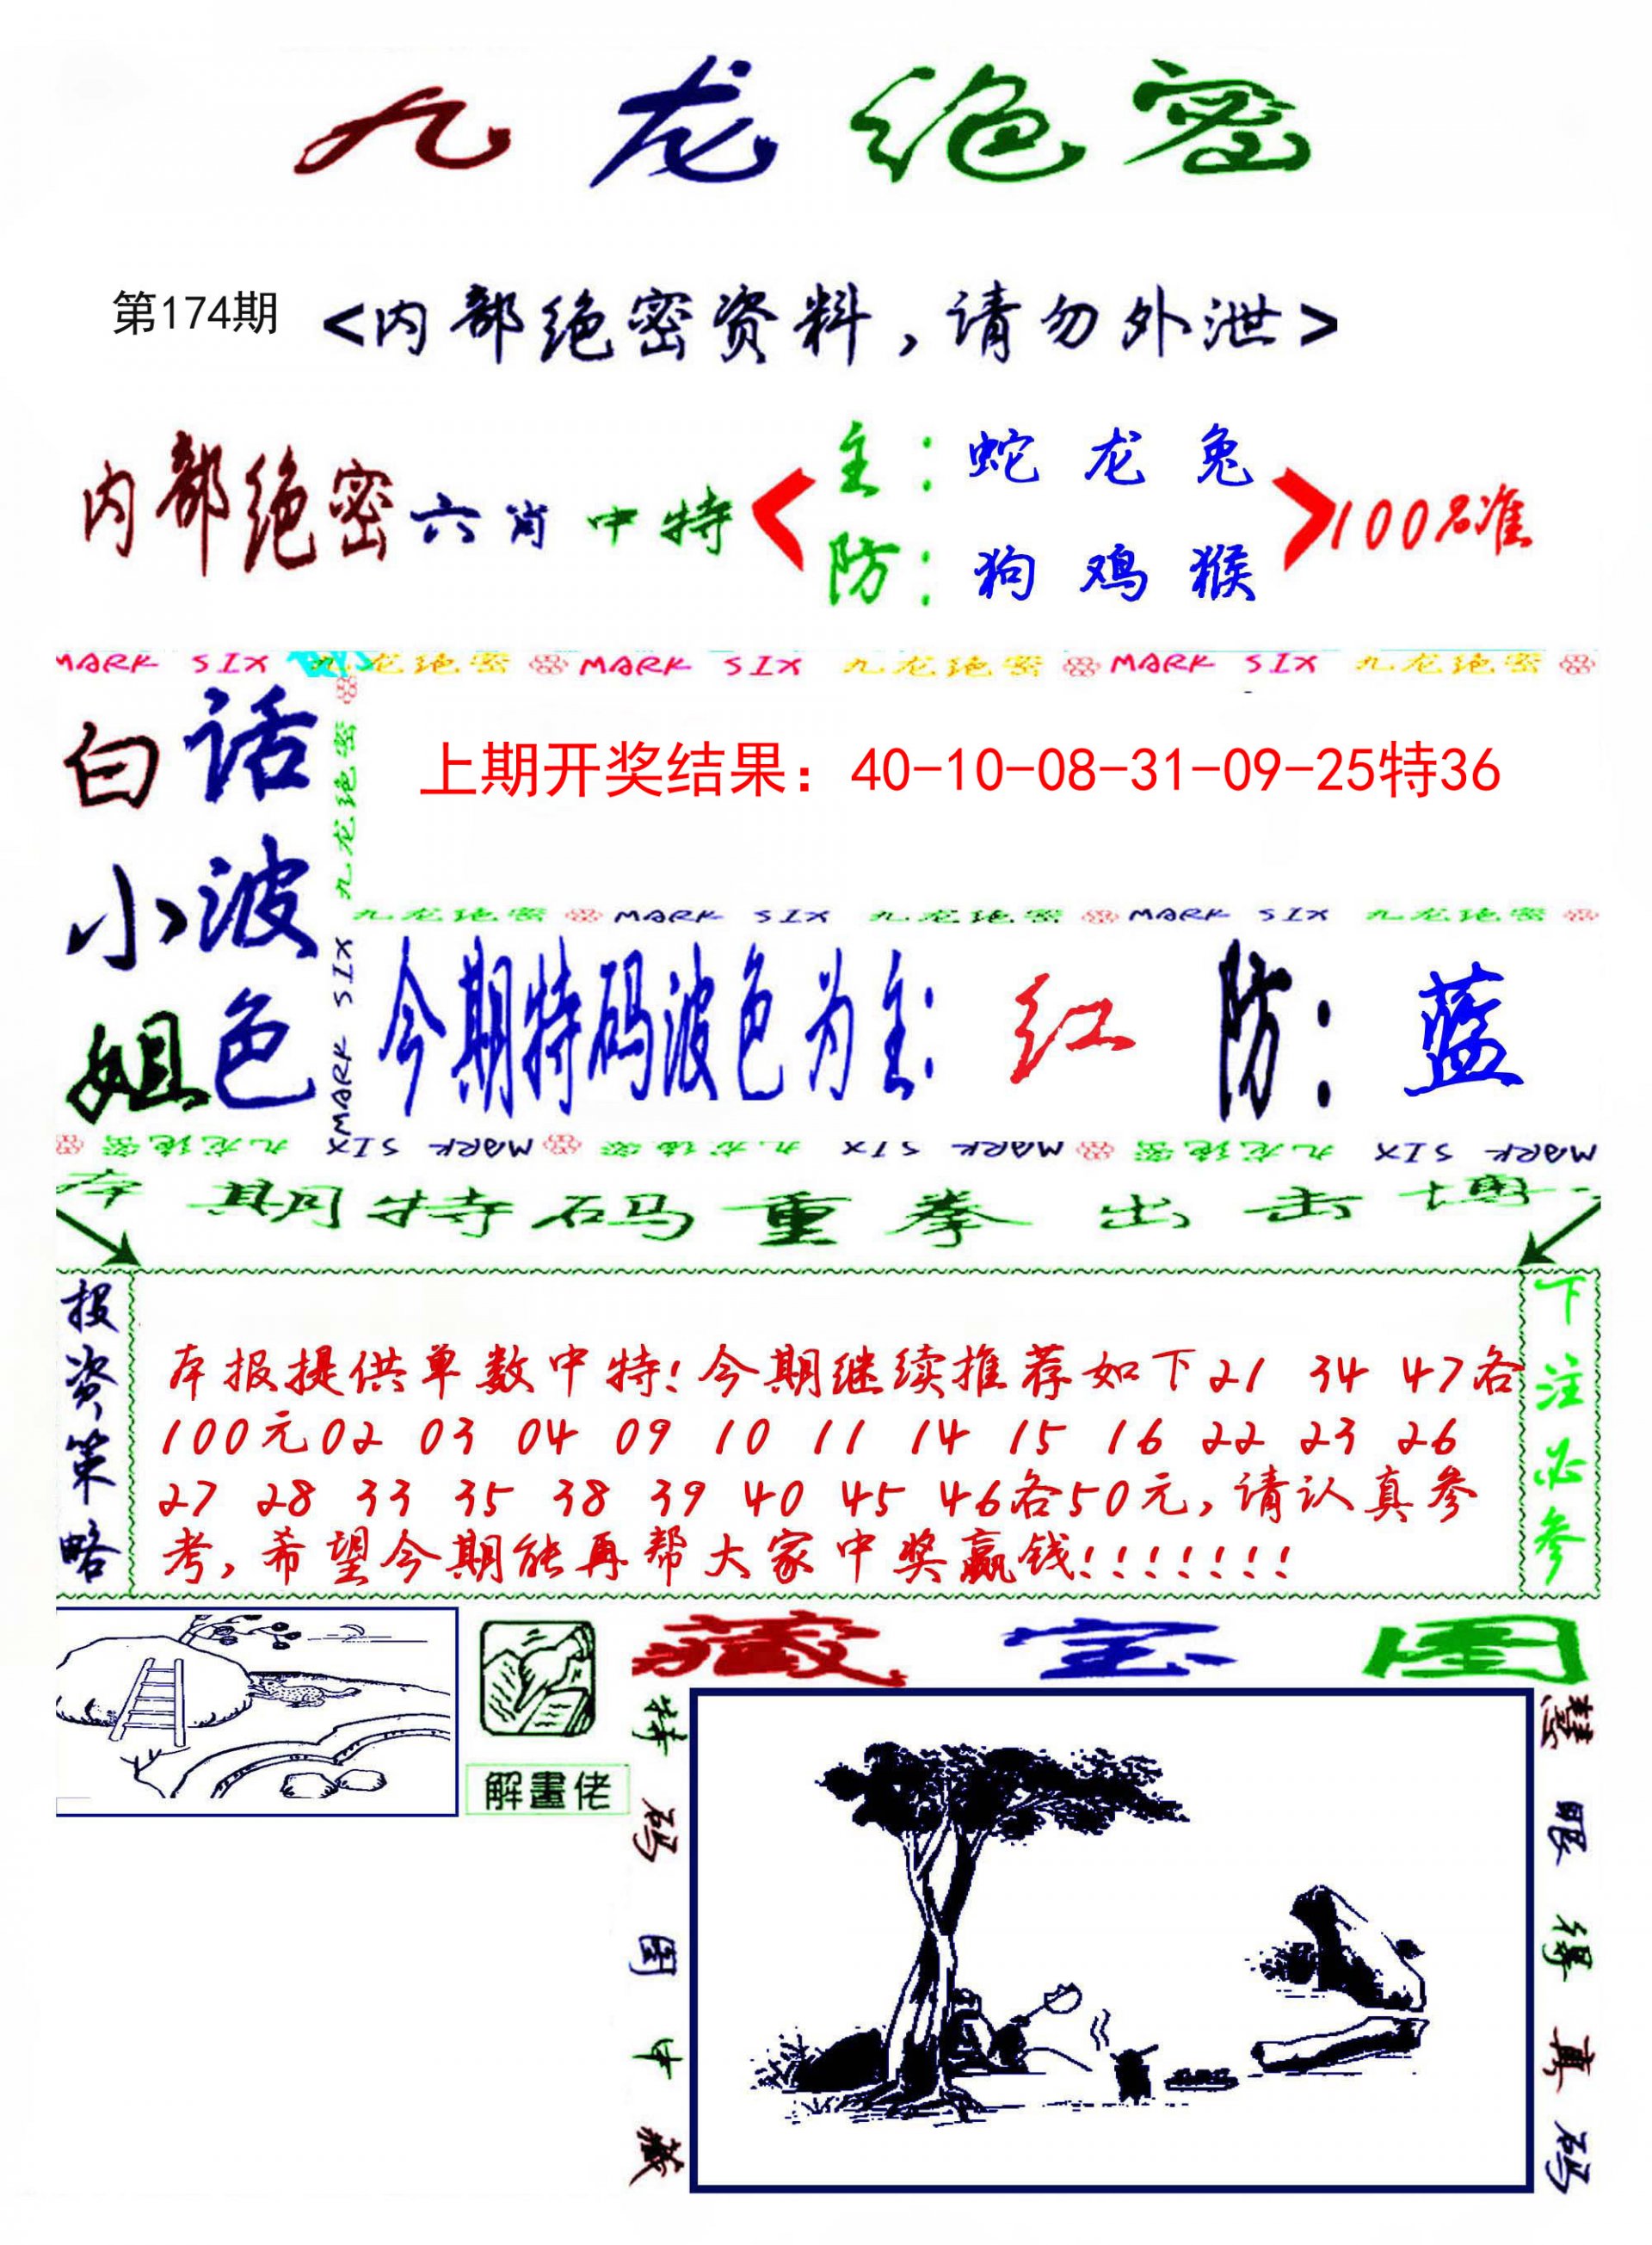 九龙绝密
第174期 <内部绝密资料,请勿外泄>
内部绝密六肖中特
主:蛇 龙 兔
防:狗 鸡 猴
100%准
MARK SIX 九龙绝密 MARK SIX 九龙绝密 MARK SIX 九龙绝密
白话
小波
姐色
九龙绝密
MARK SIX
上期开奖结果：40-10-08-31-09-25特36
九龙绝密 MARK SIX 九龙绝密 MARK SIX 九龙绝密
今期特码波色为主: 红 防: 蓝
九龙绝密 MARK SIX 九龙绝密 MARK SIX 九龙绝密 MARK SIX
本期特码重拳出击博
投资策略
本报提供单数中特!今期继续推荐如下21 34 47各
100元02 03 04 09 10 11 14 15 16 22 23 26
27 28 33 35 38 39 40 45 46各50元,请认真参
考,希望今期能再帮大家中奖赢钱!!!!!!!
下注必参
解畫佬
藏宝图
特码图中藏
慧眼得真码